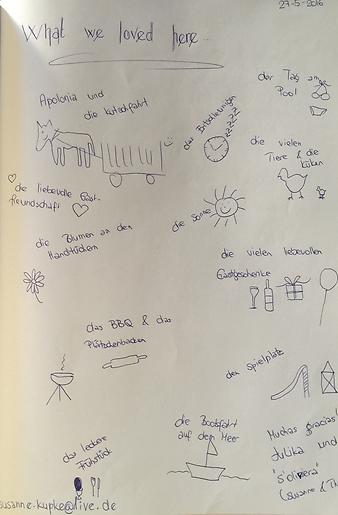 27-5-2016
What we loved here...
der Tag am
Pool
Apolonia und
die Kutschfahrt
das
zzzzz
die vielen
Tiere & die
Küken
die liebevolle Gast-
freundschaft
die Sonne
die Blumen an den
Handtüchern
die vielen liebevollen
Gastgeschenke
das BBQ & das
Plätzchenbacken
den Spielplatz
die Bootfahrt
auf dem Meer
das leckere
Frühstück
Muchas gracias!
und
(Susanne &
susanne-kupke@live.de